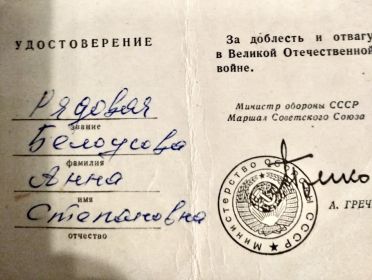 УДОСТОВЕРЕНИЕ
Рядовая
звание
Белоусова
фамилия
Анна
имя
Степановна
отчество
За доблесть и отвагу
в Великой Отечественной
войне.
Министр обороны СССР
Маршал Советского Союза
А. ГРЕЧ
МИНИСТЕРСТВО ОБОРОНЫ СССР